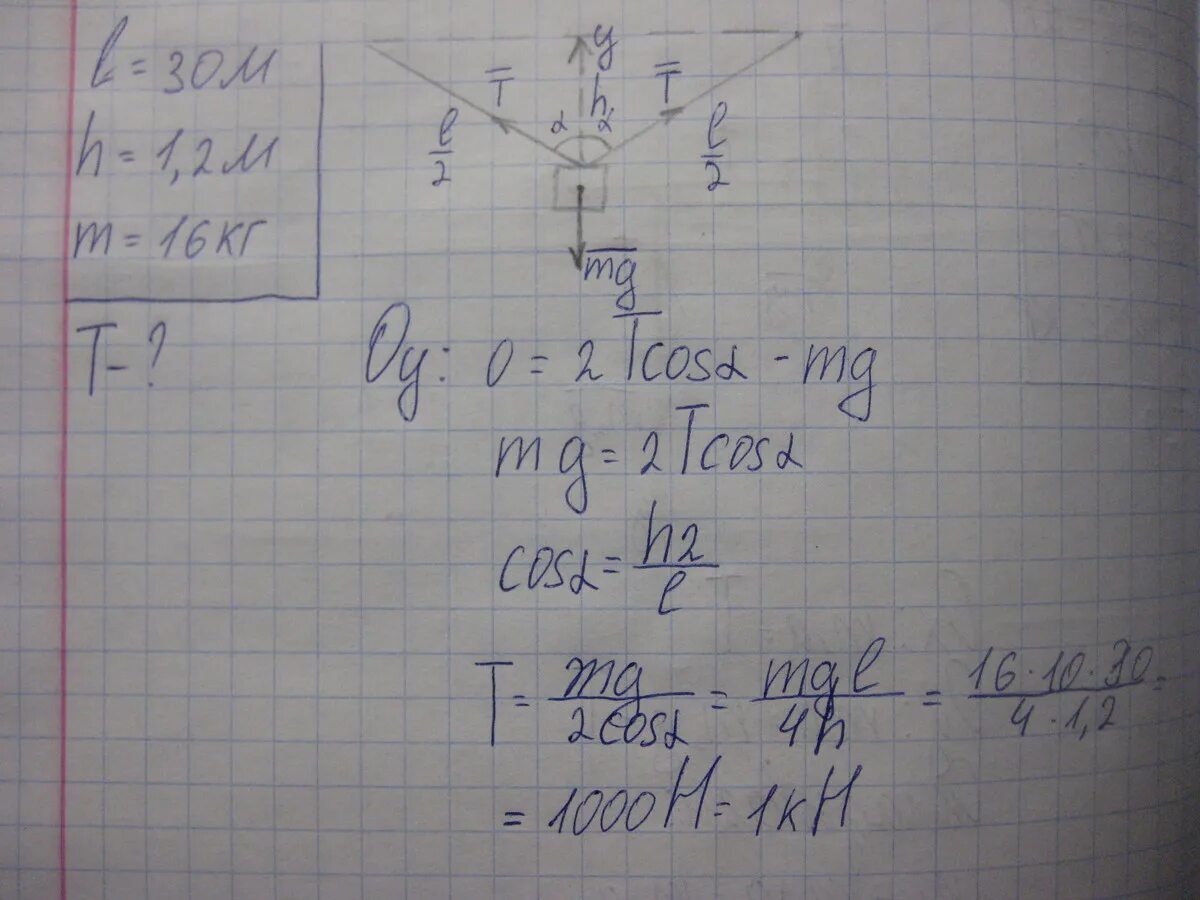 l = 30 м
h = 1,2 м
m = 16 кг
T - ?
y
T
h
T
α
α
l/2
l/2
mg
Oy: 0 = 2Tcosα - mg
mg = 2Tcosα
cosα = h2/l
T = mg/2cosα = mgl/4h = 16·10·30/4·1,2 =
= 1000 Н = 1 кН